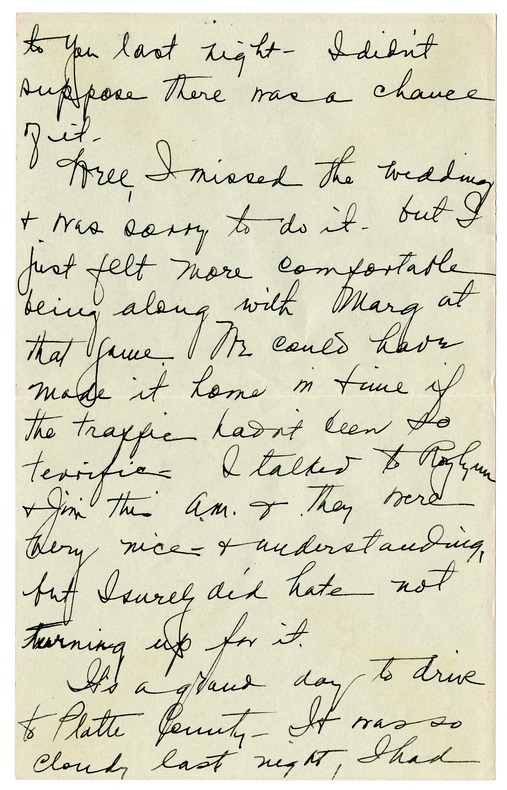 to you last night - I didn't
suppose there was a chance
of it.
Well, I missed the wedding
& was sorry to do it - but I
just felt more comfortable
being along with Marg at
that game. We could have
made it home in time if
the traffic hadn't been so
terrific - I talked to Roslynn
& Jim this a.m. & they were
very nice - & understanding,
but I surely did hate not
turning up for it.
It's a grand day to drive
to Platte County - It was so
cloudy last night, I had